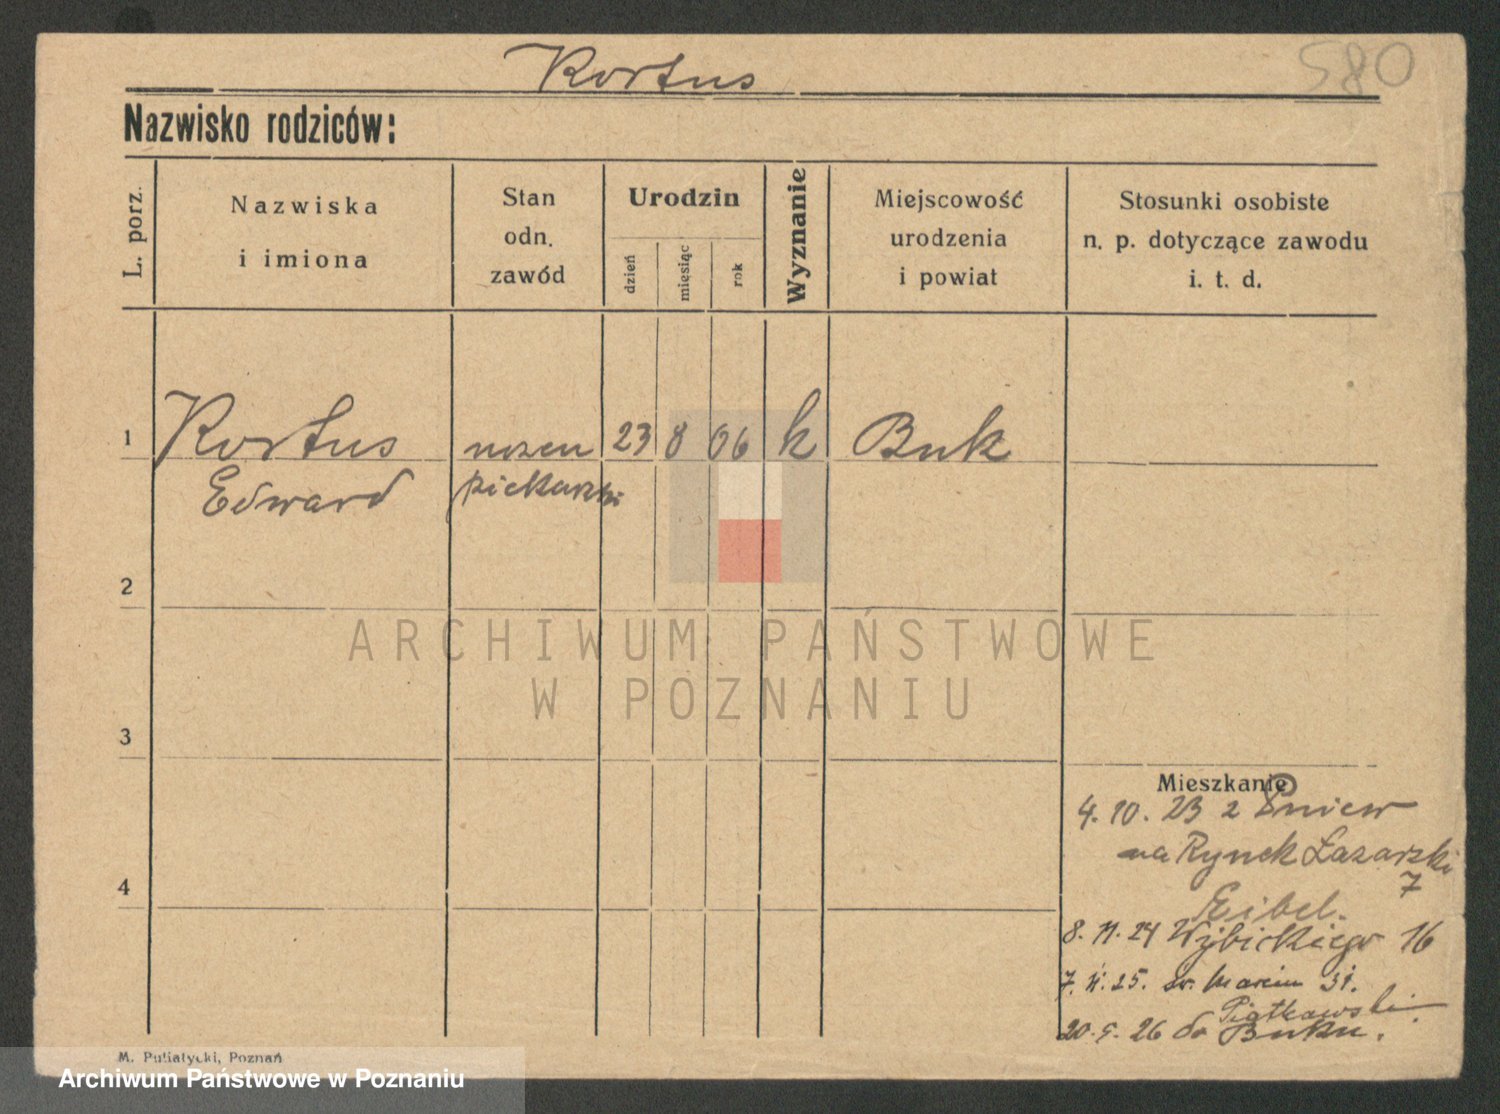 Kortus
580
Nazwisko rodziców:
L. porz.
Nazwiska
i imiona
Stan
odn.
zawód
Urodzin
dzień
miesiąc
rok
Wyznanie
Miejscowość
urodzenia
i powiat
Stosunki osobiste
n. p. dotyczące zawodu
i. t. d.
1 Kortus uczeń 23 8 06 k Buk
Edward piekarski
2
ARCHIWUM PAŃSTWOWE
W POZNANIU
3
Mieszkanie
4. 10. 23 z Pniew
na Rynek Łazarski
7
4
Eibel.
8. 11. 24 Wybickiego 16
7. 25. św. Marcin 31.
Piątkowski.
20. 5. 26 do Buku.
M. Putiatycki, Poznań
Archiwum Państwowe w Poznaniu